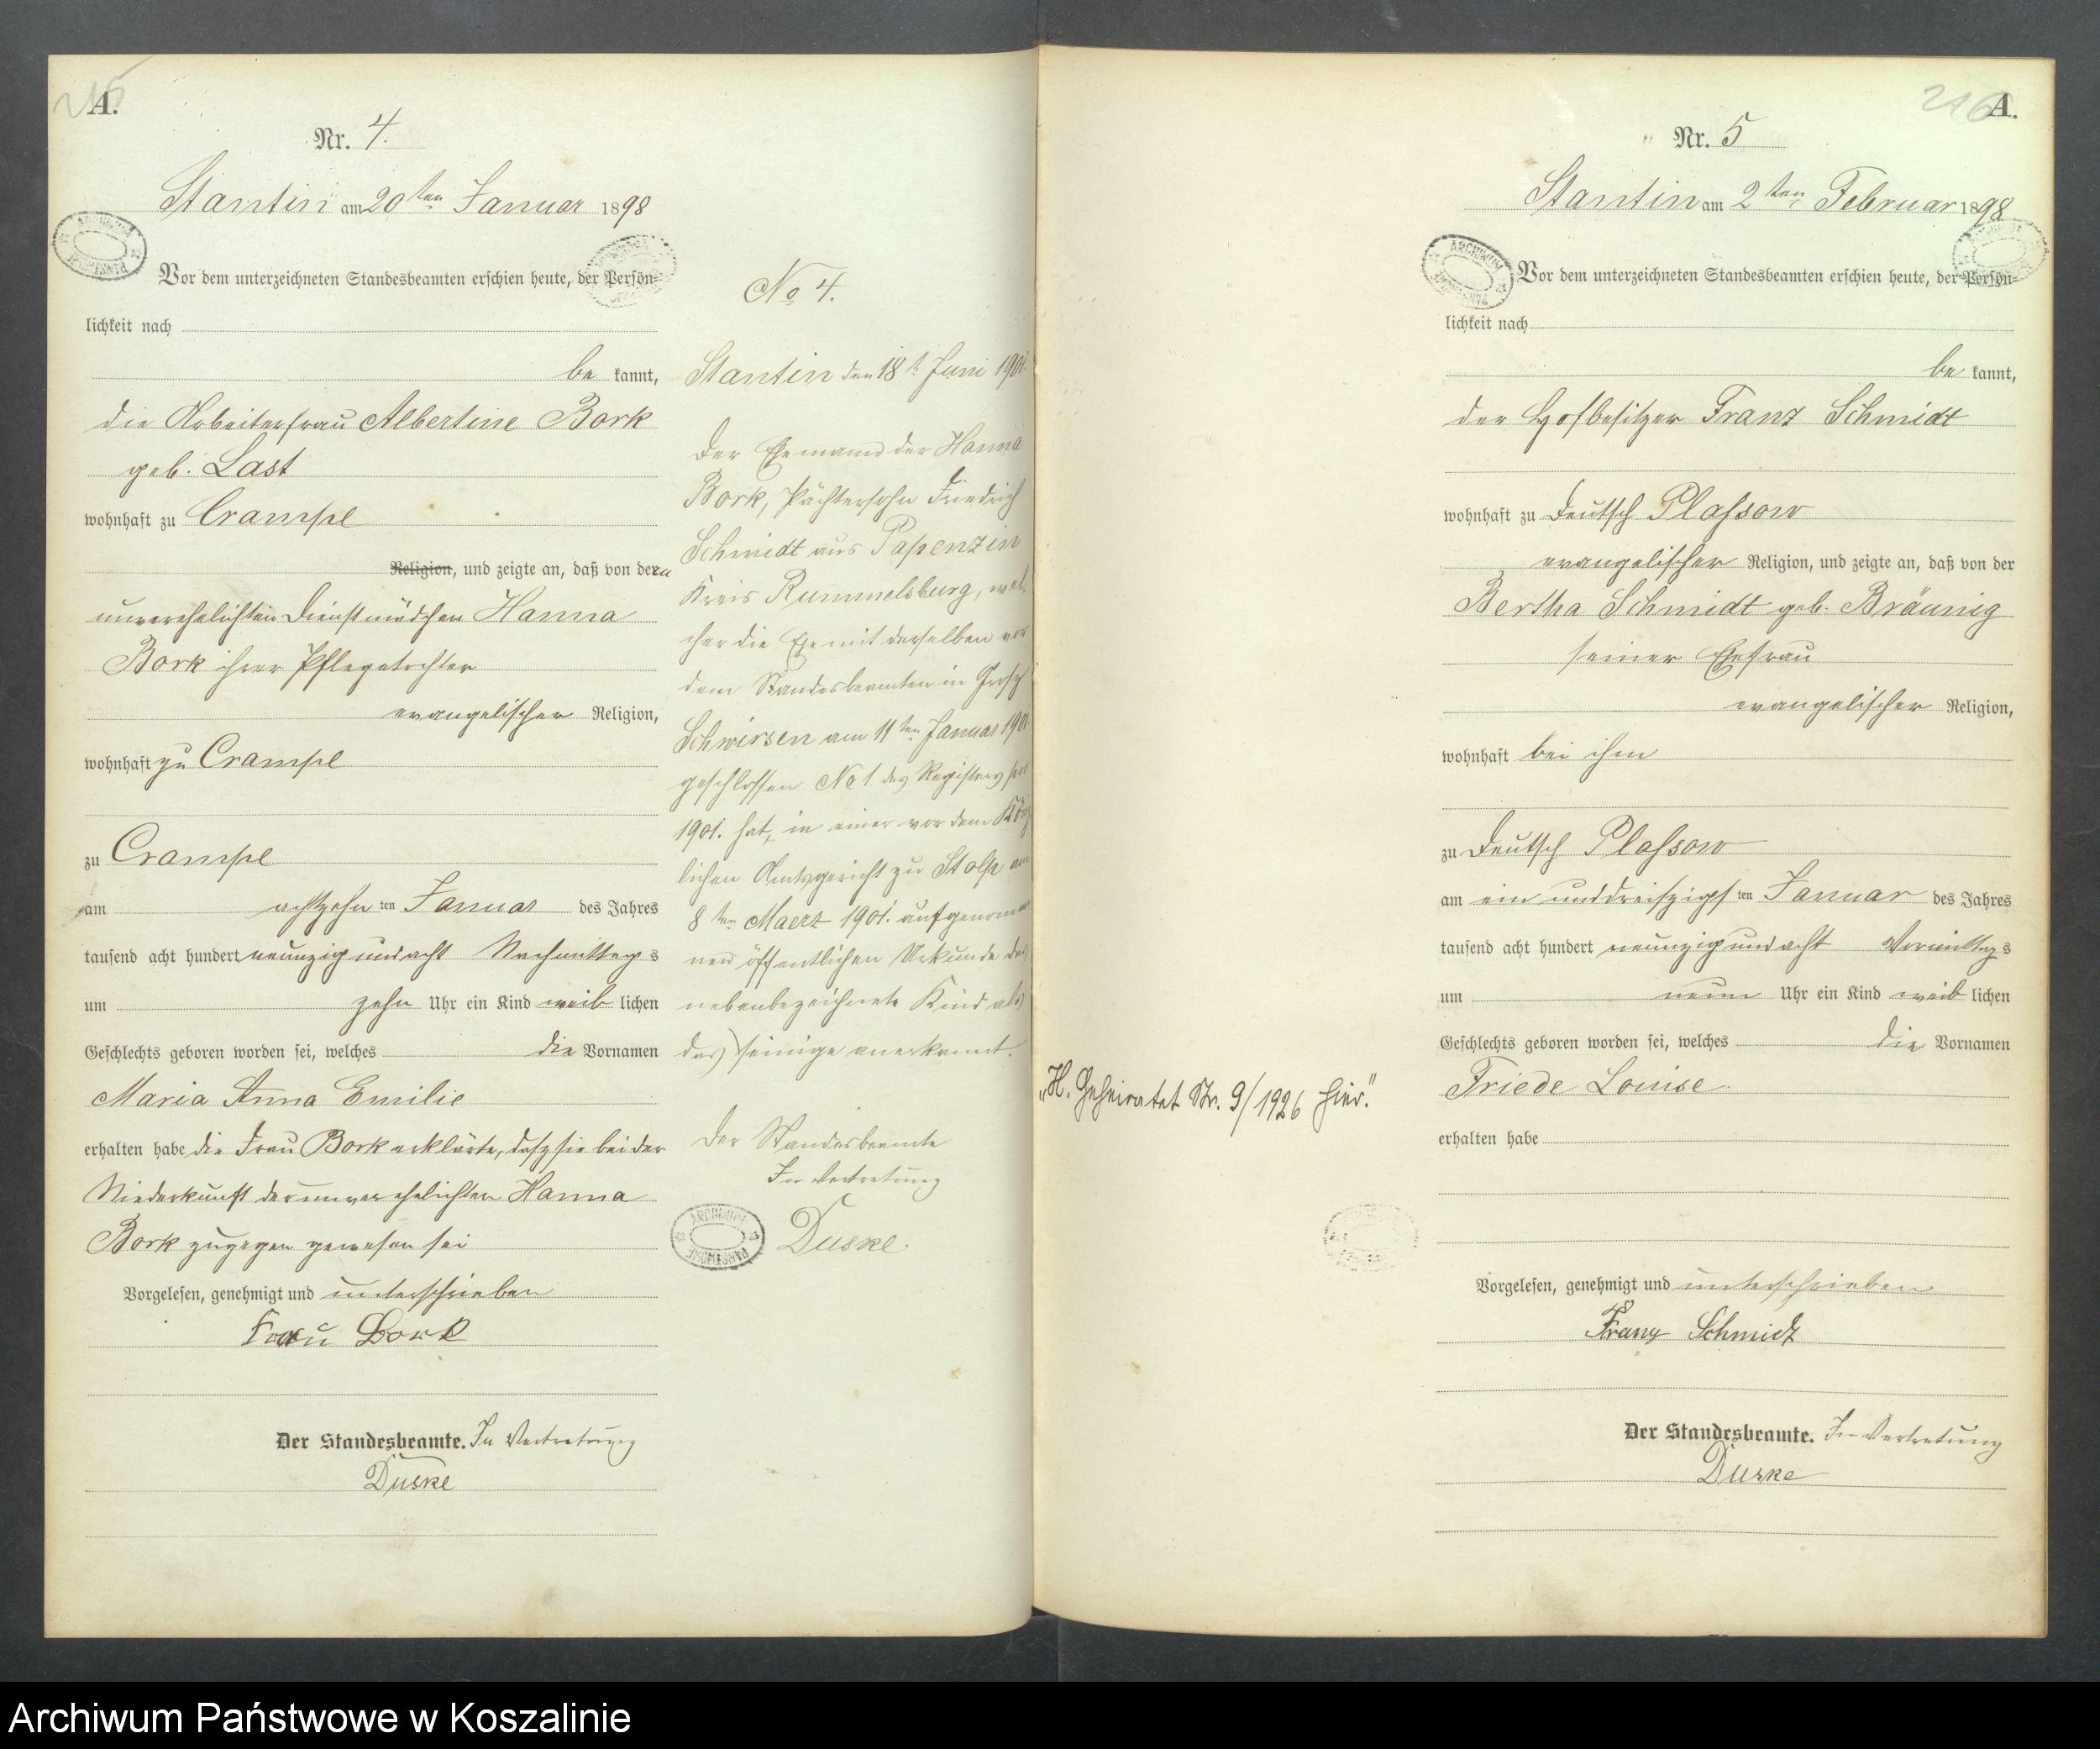 215
A.
Nr. 4.
Stantin am 20ten Januar 1898
Vor dem unterzeichneten Standesbeamten erschien heute, der Persön-
lichkeit nach
be kannt,
die Arbeiterfrau Albertine Bork
geb. Last
wohnhaft zu Crampe
Religion, und zeigte an, daß von deren
unverehelichten Dienstmädchen Hanna
Bork ihrer Pflegetochter
evangelischer Religion,
wohnhaft zu Crampe
zu Crampe
am achtzehn ten Januar des Jahres
tausend acht hundert neunzig und acht Nachmittag s
um zehn Uhr ein Kind weib lichen
Geschlechts geboren worden sei, welches die Vornamen
Maria Anna Emilie
erhalten habe die Frau Bork erklärte, daß sie bei der
Niederkunft der unverehelichten Hanna
Bork zugegen gewesen sei
Vorgelesen, genehmigt und unterschrieben
Frau Bork
Der Standesbeamte. In Vertretung
Duske
No 4.
Stantin den 18t Juni 1901.
Der Ehemann der Hanna
Bork, Pächtersohn Friedrich
Schmidt aus Papenzin
Kreis Rummelsburg, wel-
cher die Ehe mit derselben vor
dem Standesbeamten in Groß
Schwirsen am 11ten Januar 1901
geschlossen No 1 des Registers pro
1901. hat, in einer vor dem König
lichen Amtsgericht zu Stolp am
8ten Maerz 1901. aufgenomme
nen öffentlichen Urkunde das
nebenbezeichnete Kind als
das seinige anerkannt.
Der Standesbeamte
In Vertretung
ARCHIWUM PAŃSTWOWE
Duske.
216
A.
Nr. 5
Stantin am 2ten Februar 1898
ARCHIWUM
Vor dem unterzeichneten Standesbeamten erschien heute, der Persön-
lichkeit nach
be kannt,
der Hofbesitzer Franz Schmidt
wohnhaft zu Deutsch Plassow
evangelischer Religion, und zeigte an, daß von der
Bertha Schmidt geb. Bräunig
seiner Ehefrau
evangelischer Religion,
wohnhaft bei ihm
zu Deutsch Plassow
am ein und dreißigs ten Januar des Jahres
tausend acht hundert neunzig und acht Vormittag s
um neun Uhr ein Kind weib lichen
Geschlechts geboren worden sei, welches die Vornamen
Friede Louise.
erhalten habe
Vorgelesen, genehmigt und unterschrieben
Franz Schmidt
Der Standesbeamte. In Vertretung
Duske
"H. Geheiratet Nr. 9/1926 hier."
Archiwum Państwowe w Koszalinie